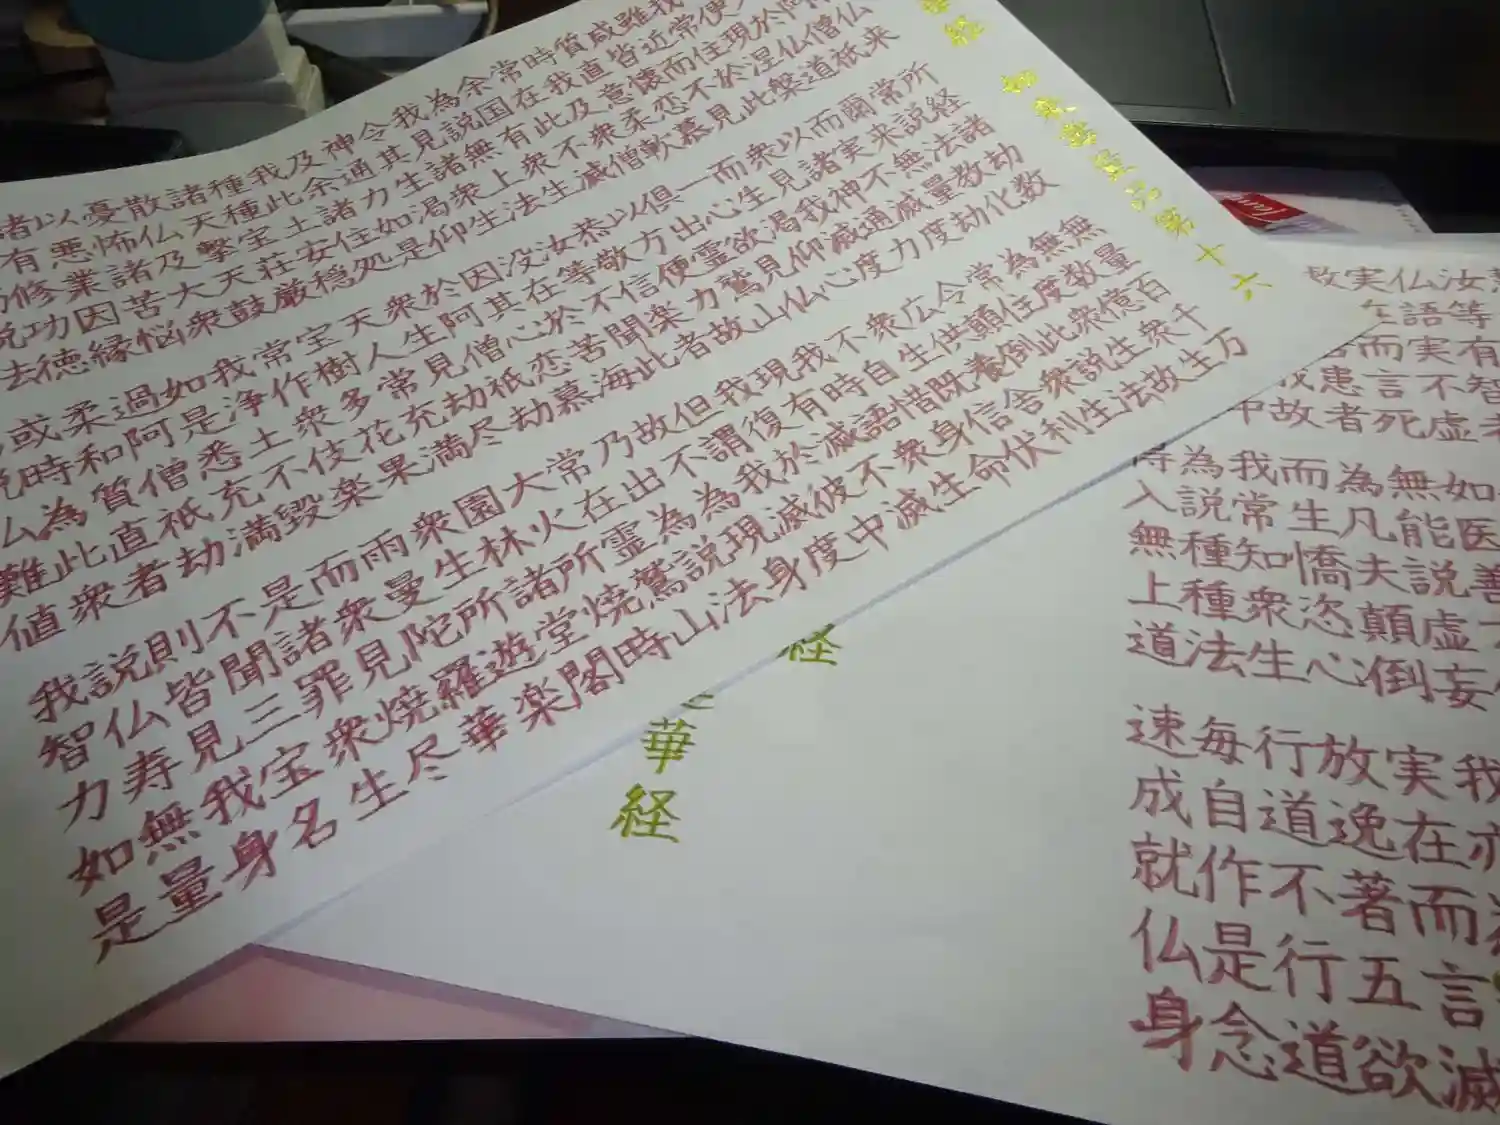 経
如来寿量品第十六
来
所経諸劫数
無量百千万
僧祇
常説法教化
無数億衆生
仏道
爾来無量劫
為度衆生故
現涅槃
而実不滅度
常住此説法
我常住於此
以諸神通力
令顛倒衆生
雖近而不見
衆見我滅度
広供養舎利
咸皆懐恋慕
而生渇仰心
衆生既信伏
質直意柔軟
一心欲見仏
不自惜身命
時我及衆僧
俱出霊鷲山
我時語衆生
常在此不滅
以方便力故
現有滅不滅
余国有衆生
恭敬信楽者
我復於彼中
為説無上法
汝等不聞此
但謂我滅度
我見諸衆生
没在於苦海
故不為現身
令其生渇仰
因其心恋慕
乃出為説法
神通力如是
於阿僧祇劫
常在霊鷲山
及余諸住処
衆生見劫尽
大火所焼時
我此土安穏
天人常充満
園林諸堂閣
種種宝荘厳
宝樹多花果
衆生所遊楽
諸天撃天鼓
常作衆伎楽
雨曼陀羅華
散仏及大衆
我浄土不毀
而衆見焼尽
憂怖諸苦悩
如是悉充満
是諸罪衆生
以悪業因縁
過阿僧祇劫
不聞三宝名
諸有修功徳
柔和質直者
則皆見我身
或時為此衆
説仏寿無量
仏難値
我智力如是
華経
経
汝等有智者
仏語実不虚
実在而言死
無能説虚妄
我亦
為凡夫顛倒
実在而言滅
而生憍恣心
放逸著五欲
我常知衆生
行道不行道
為説種種法
毎自作是念
入無上道
速成就仏身